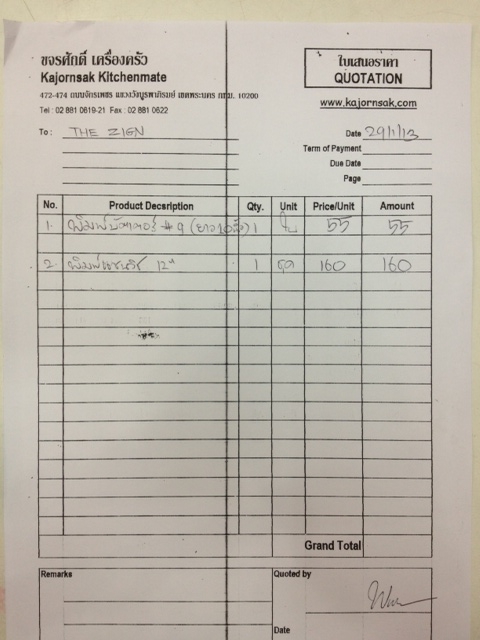 ขจรศักดิ์ เครื่องครัว
Kajornsak Kitchenmate
472-474 ถนนจักรเพชร แขวงวังบูรพาภิรมย์ เขตพระนคร กทม. 10200
Tel : 02 881 0619-21 Fax : 02 881 0622
ใบเสนอราคา
QUOTATION
www.kajornsak.com
To : THE ZIGN
Date 29/1/13
Term of Payment
Due Date
Page
No. Product Decsription Qty. Unit Price/Unit Amount
1. #9 1 55 55
2. 12" 1 160 160
Grand Total
Remarks
Quoted by
Date